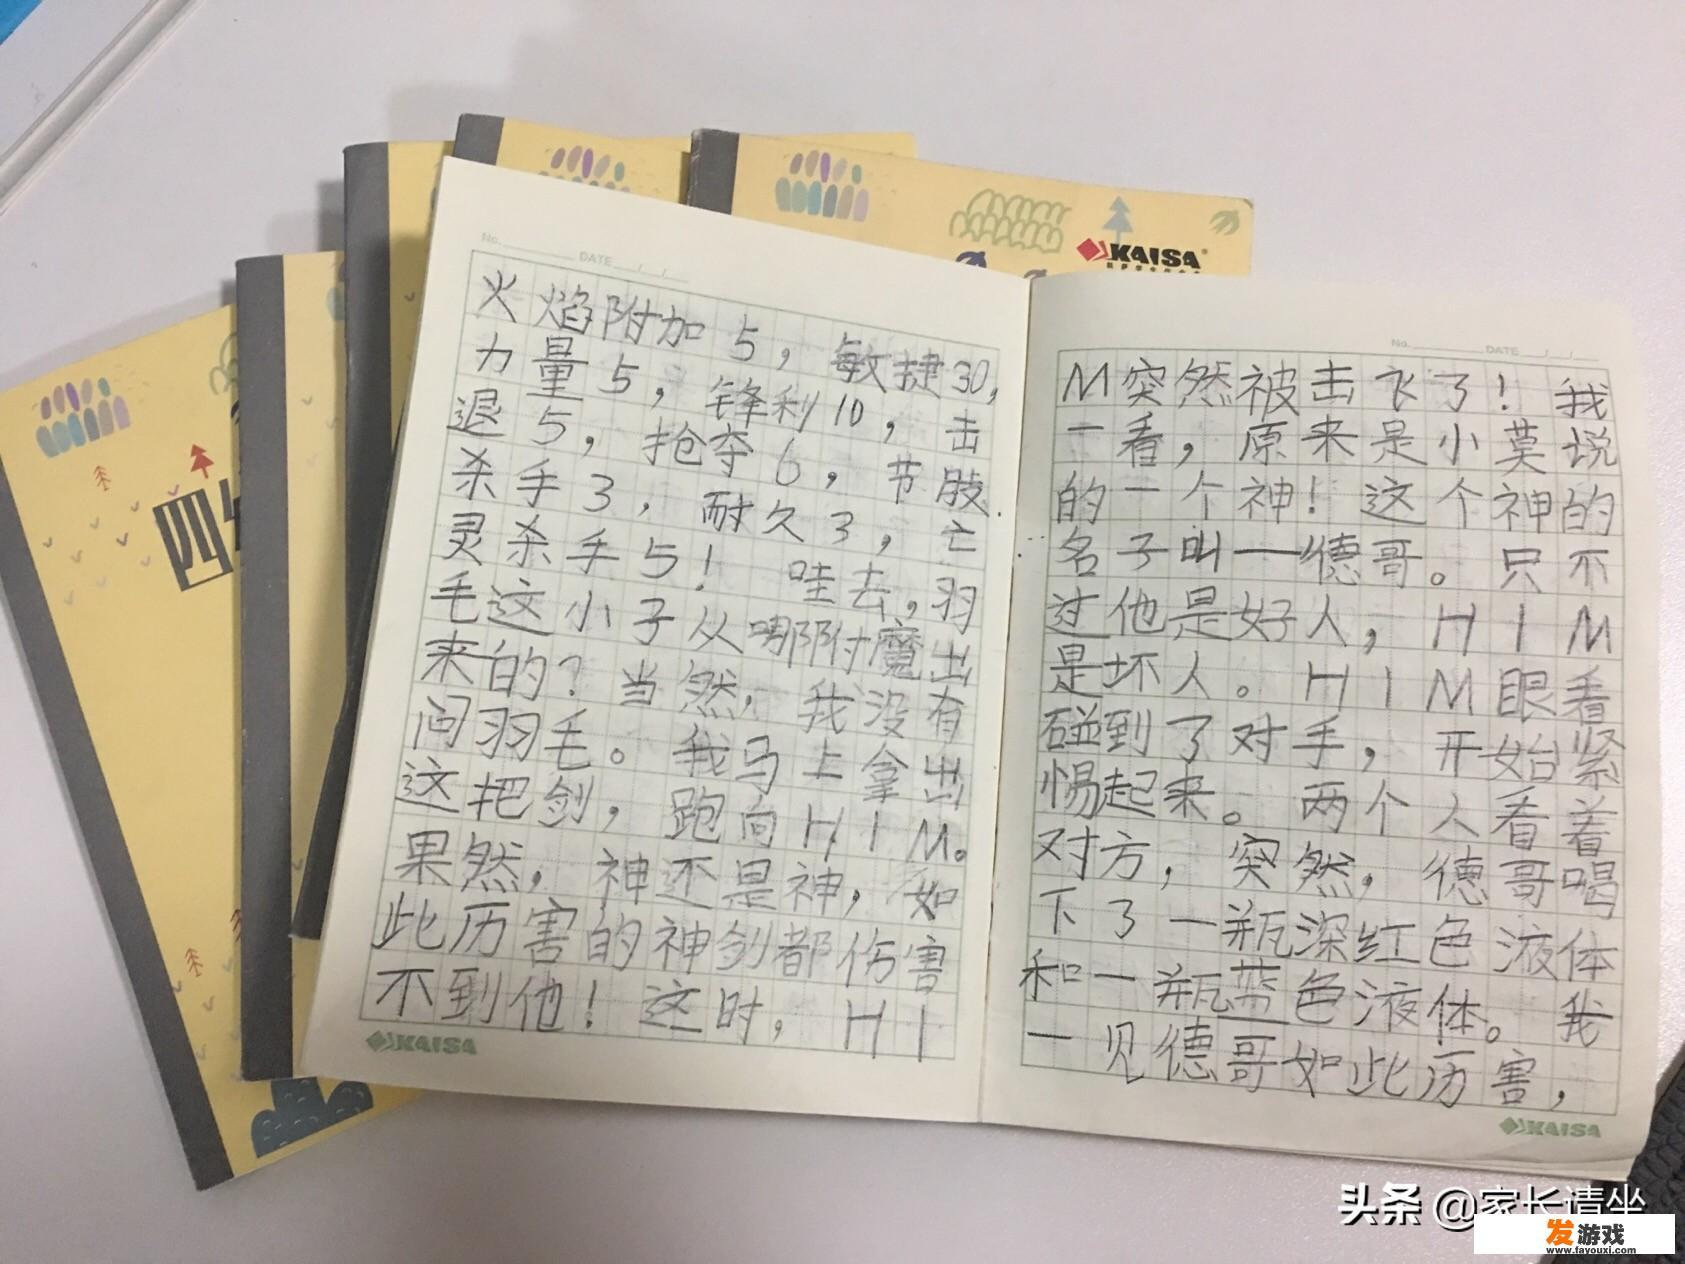 KAISA
四
No. DATE / /
火焰附加5，敏捷30，
力量5，锋利10，击
退5，抢夺6，节肢
杀手3，耐久3，亡
灵杀手5！哇去，羽
毛这小子从哪附魔出
来的？当然，我没有
问羽毛。我马上拿出
这把剑，跑向HIM。
果然，神还是神，如
此历害的神剑都伤害
不到他！这时，HI
KAISA
No. DATE / /
M突然被击飞了！我
一看，原来是小莫说
的一个神！这个神的
名子叫——德哥。只不
过他是好人，HIM
是坏人。HIM眼看
碰到了对手，开始紧
惕起来。两个人看着
对方，突然，德哥喝
下了一瓶深红色液体
和一瓶蓝色液体。我
一见德哥如此历害，
KAISA
头条 @家长请坐
发游戏
www.fayouxi.com